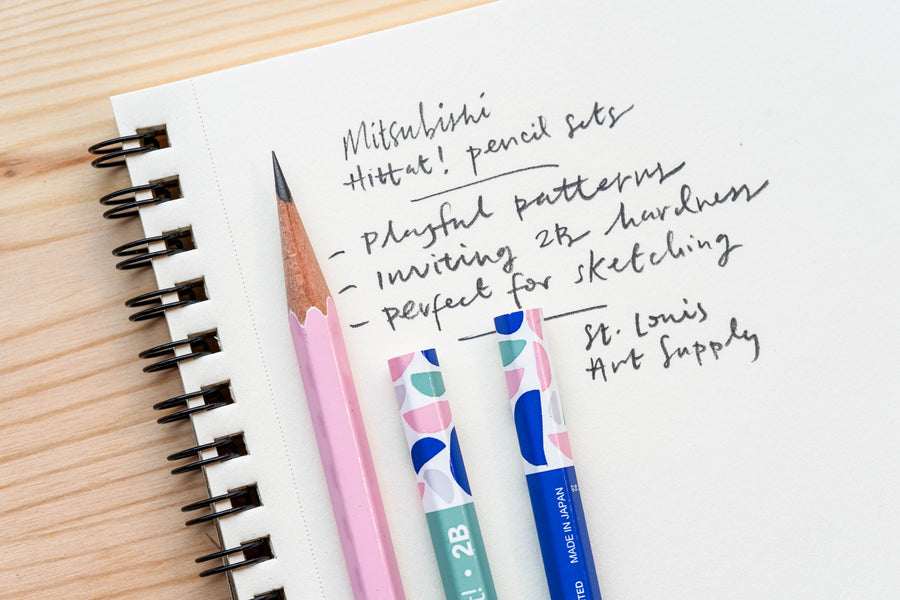 Mitsubishi
Hittat! pencil sets
- playful patterns
- inviting 2B hardness
- perfect for sketching
St. Louis
Art Supply
t! • 2B
MADE IN JAPAN
TED